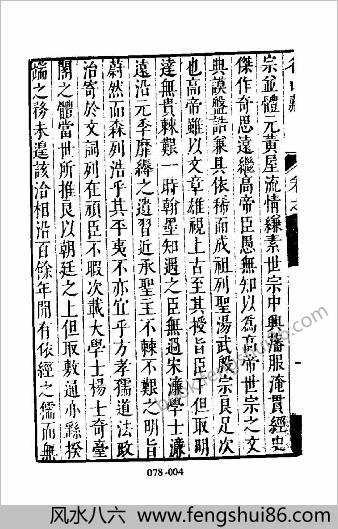 宗並體元黃屋流情縑素世宗中興藩服淹貫經史
傑作奇思遠繼高帝臣愚無知以為高帝世宗之文
與謨盤誥兼具依稀而成祖列聖湯武殷宗良足次
也高帝雖以文章雄視上古至其授旨臣工但取明
達無貴棘艱一時翰墨知遇之臣無過宋濂學士濂
遠沿元季靡縟之遺習近承聖主不棘不艱之明旨
蔚然而森列浩乎其平夷不亦宜乎方孝孺道法政
治寄於文詞列在頑臣不暇次載大學士楊士奇臺
閣之體當世所推良以朝廷之上但取敷適亦繇揆
端之務未遑該洽相沿百餘年間有依經之儒而無
078-004
book.fengshui86.com
风水八六－www.fengshui86.com